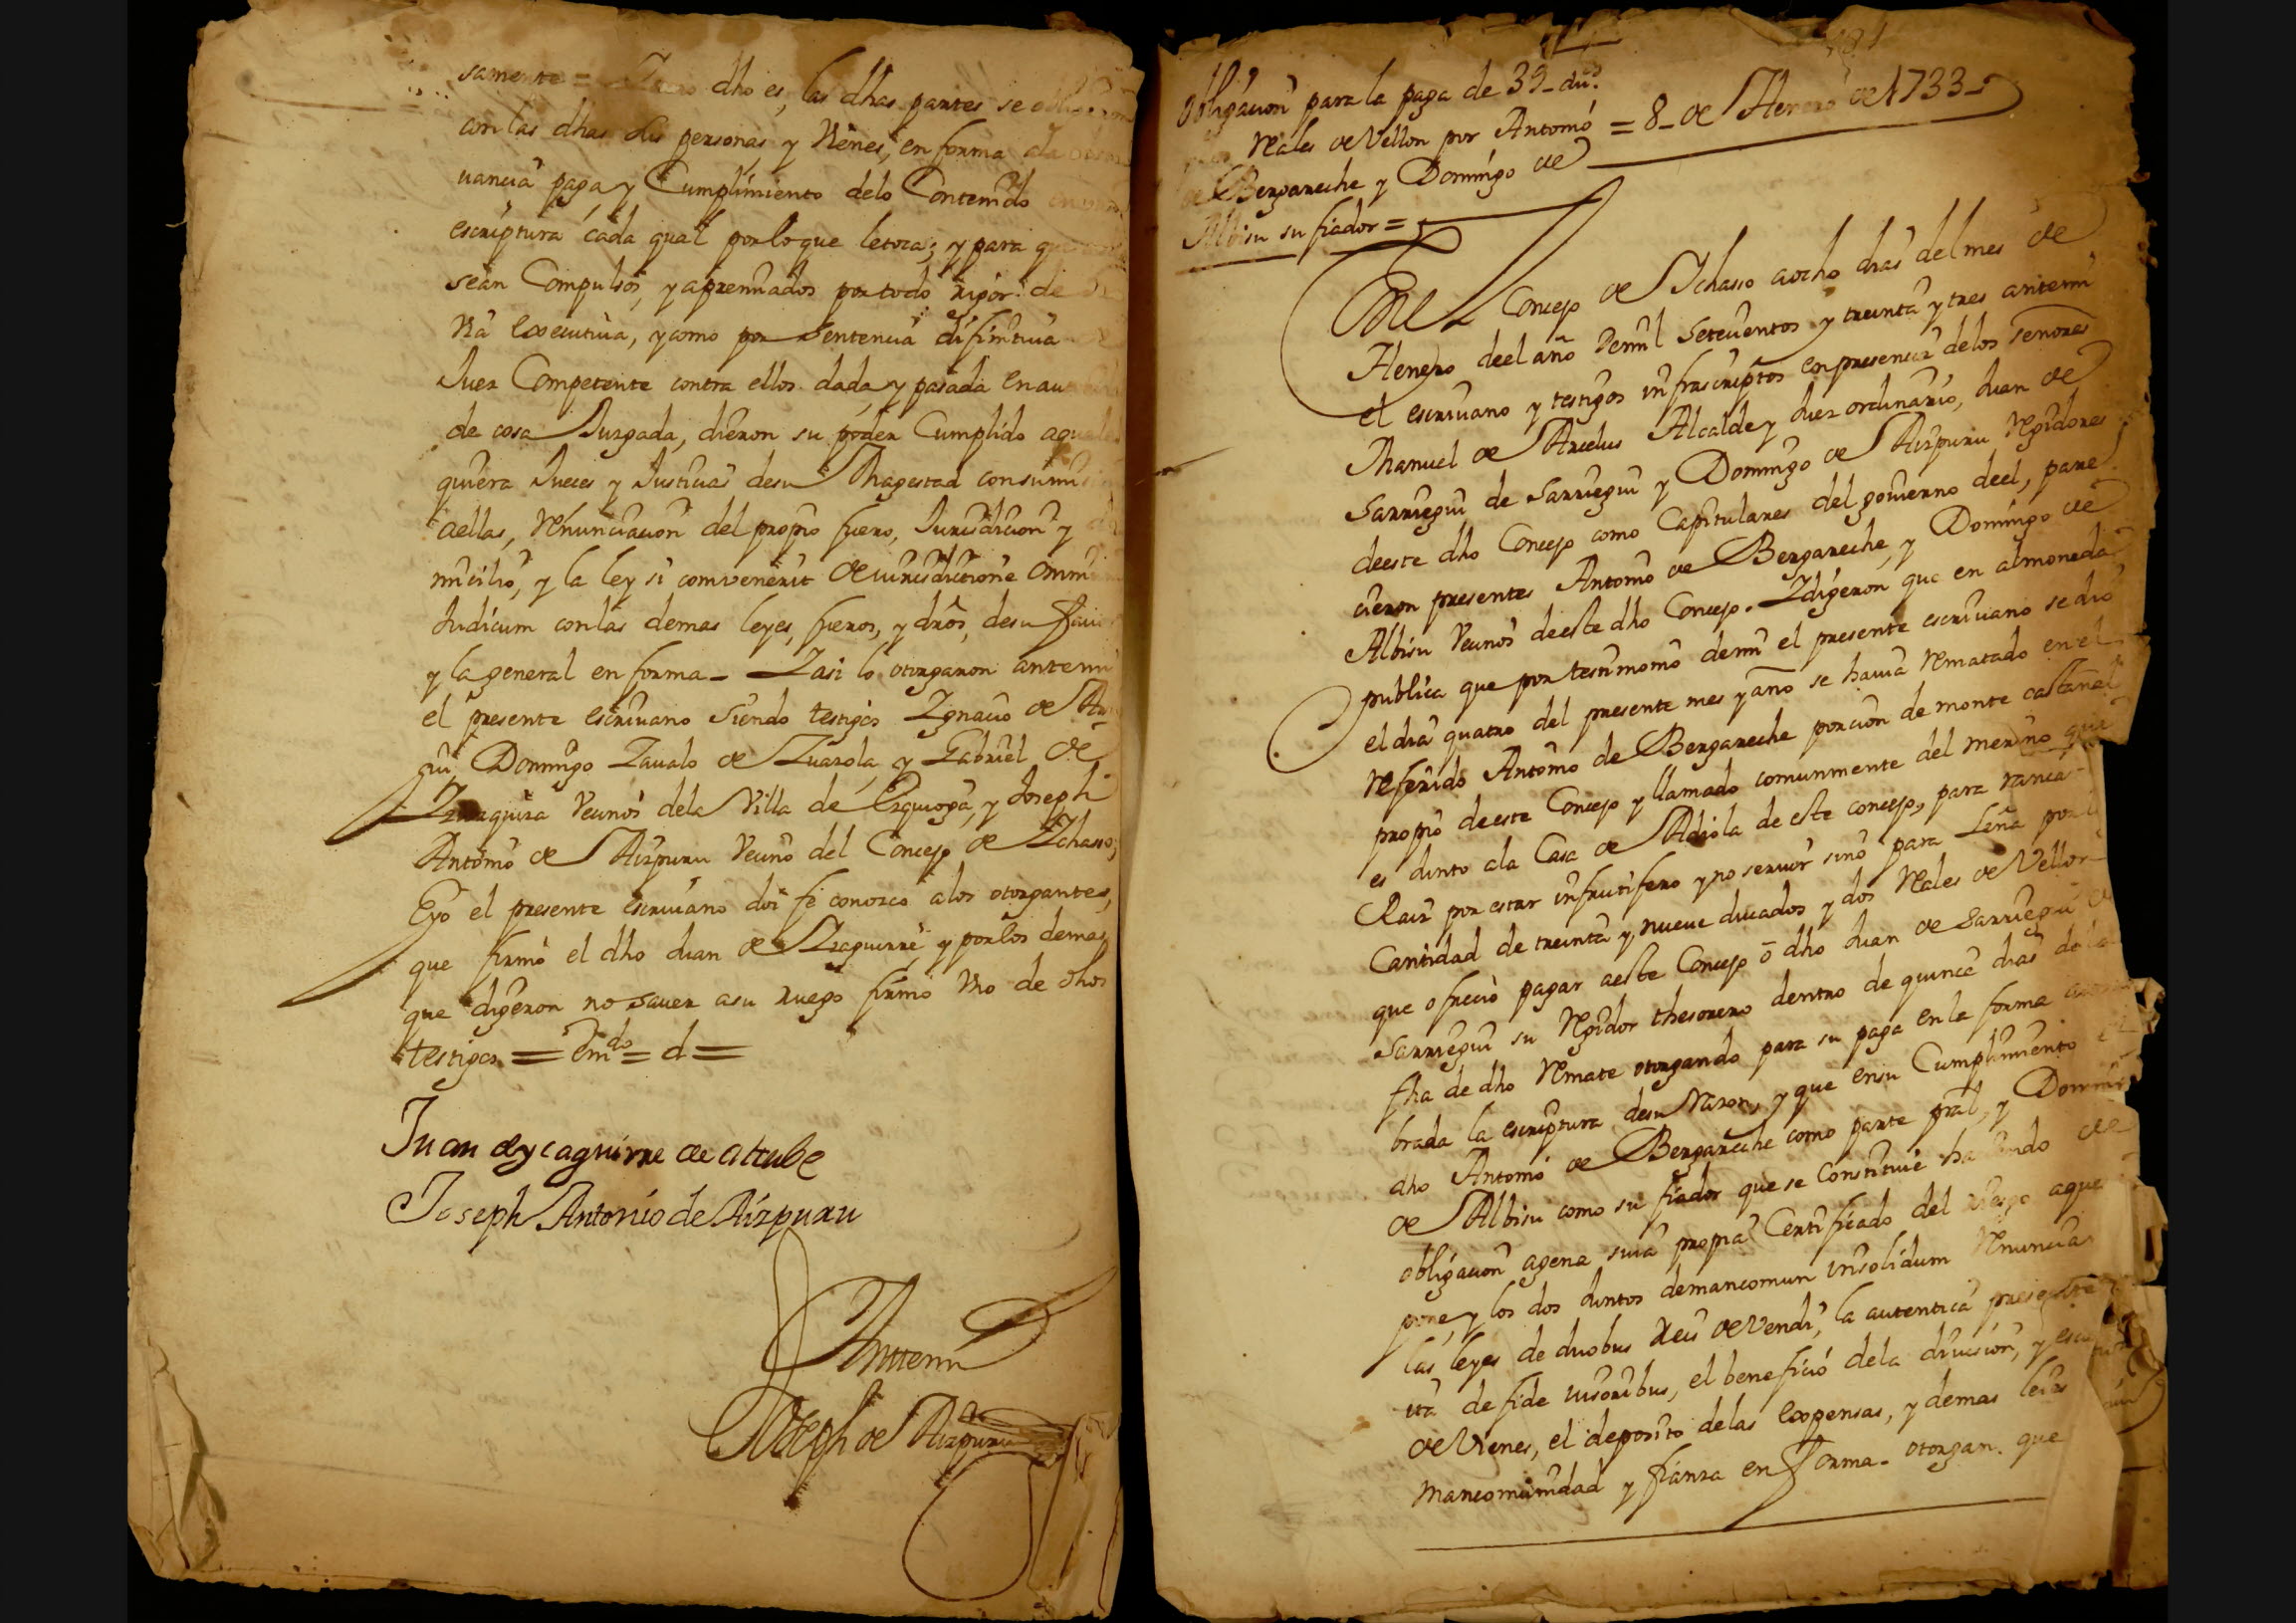 samente = dho es, las dhas partes se
con las dhas sus personas y Vienes, en forma ala
uancia paga y Cumplimiento delo Contenido
escriptura cada qual por lo que letoca; y para que
sean Compulsos, y apremiados por todo rigor de
Via Executiua, y como por Sentencia difinitiua de
Juez Competente contra ellos dada y pasada en
de cosa Juzgada, dieron su poder Cumplido
quiera Jueces y Justicias desu Magestad con
aellas, Renunciacion del propio fuero, Jurisdicion y
micilio, y la ley si comvenerit de iurisdictione
Judicum con las demas leyes, fueros, y dros, desu fauor
y la general en forma _ Y asi lo otorgaron antemi
el presente escriuano siendo testigos Ygnacio de
Domingo Zaualo de Zuazola, y Gabriel de
Vecinos dela Villa de Ezquioga, y Joseph
Antonio de Aizpuru Vecino del Concejo de Ychasso,
E yo el presente escriuano doi fe conozco alos otorgantes,
que firmó el dho Juan de Yzaguirre, y por los demas
que digeron no sauer asu ruego firmo Vno de dhos
testigos = Emdo = d =
Juan de ycaguirre de
Joseph Antonio de Aizpuru
Anttemi
Joseph de Aizpuru
Obligacion para la paga de 39_ dus.
Reales de Vellon por Antonio = 8_ de Henero de 1733_
de Bergareche y Domingo de
Albisu su fiador =
En el Concejo de Ychasso aocho dias del mes de
Henero deel año demil Setecientos y treinta y tres antemi
el escriuano y testigos infrascriptos en presencia delos Señores
Manuel de Arcelus Alcalde y Juez ordinario, Juan de
Sarriegui de Sarriegui y Domingo de Aizpuru Regidores
deeste dho Concejo como Capitulares del gouierno deel, pare
cieron presentes Antonio de Bergareche, y Domingo de
Albisu Vecinos deeste dho Concejo. Y digeron que en almoneda
publica que por testimonio demi el presente escriuano se dio
el dia quatro del presente mes y año se hauia Rematado en el
Referido Antonio de Bergareche porcion de monte castañal
propio deeste Concejo y llamado comunmente del merino que
es Junto ala Casa de Adiola de este concejo, para
Raiz por estar infrutifero y no seruir sino para Leña por la
Cantidad de treinta y nueue ducados y dos Reales de Vellon
que ofrecio pagar aeste Concejo o dho Juan de Sarriegui de
Sarriegui su Regidor thesorero dentro de quince dias dela
fha de dho Remate otorgando para su paga en la forma
brada la escriptura desu Razon, y que en su Cumplimiento el
dho Antonio de Bergareche como parte pral, y Domingo
de Albisu como su fiador que se constituie haciendo de
obligacion agena suia propia Certificado del riesgo aque
pone, y los dos Juntos demancomun insolidum Renuncian
las leyes de duobus Reis devendi, la autentica presente
ita de fide iusoribus, el beneficio dela diuision, y
de Vienes, el deposito delas Expensas, y demas leies
mancomunidad y fianza en forma_ otorgan que